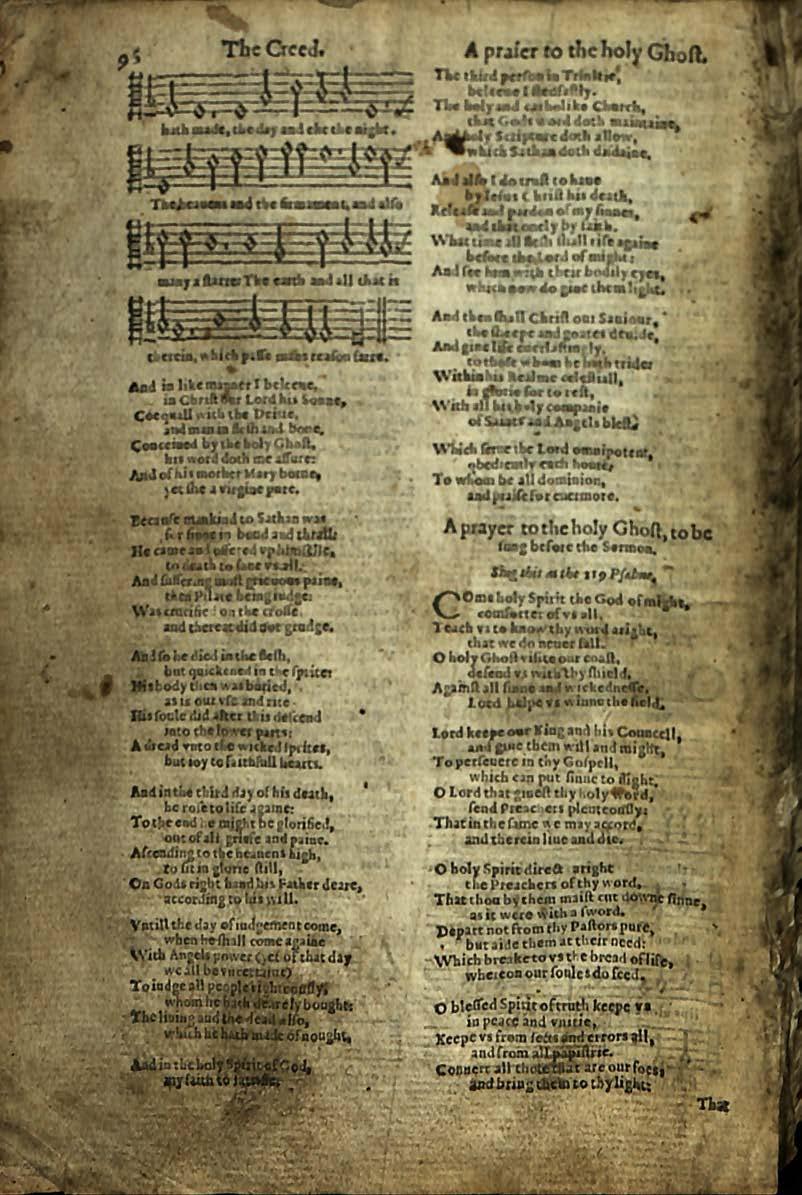 95
The Creed.
hath made, the day and eke the night.
The heauens and the firmament, and also
many a starre: The earth and all that is
therein, which passe mans reason farre.
And in like maner I beleeue,
in Christ our Lord his Sonne,
Coequall with the Deitie,
and man in flesh and bone.
Conceiued by the holy Ghost,
his word doth me assure:
And of his mother Mary borne,
yet she a virgine pure.
Because mankind to Sathan was
for sinne in bond and thrall:
He came and offered vp himselfe,
to death to saue vs all.
And suffering most grieuous paine,
then Pilate being iudge:
Was crucified on the crosse
and thereat did not grudge.
And so he died in the flesh,
but quickened in the sprite:
His body then was buried,
as is our vse and rite.
His soule did after this descend
into the lower parts:
A dread vnto the wicked sprites,
but ioy to faithfull hearts.
And in the third day of his death,
he rose to life againe:
To the end he might be glorified,
out of all griefe and paine.
Ascending to the heauens high,
to sit in glorie still,
On Gods right hand his Father deare,
according to his will.
Vntill the day of iudgement come,
when he shall come againe
With Angels power (yet of that day
we all be vncertaine)
To iudge all people righteously,
whom he hath dearely bought:
The liuing and the dead also,
which he hath made of nought,
And in the holy Spirit of God,
my faith to
A praier to the holy Ghost.
The third person in Trinitie,
beleeue I stedfastly.
The holy and catholike Church,
that Gods word doth maintaine,
And holy Scripture doth allow,
which Sathan doth disdaine.
And also I do trust to haue
by Iesus Christ his death,
Release and pardon of my sinnes,
and that onely by faith.
What time all flesh shall rise againe
before the Lord of might:
And see him with their bodily eyes,
which now do giue them light.
And then shall Christ our Sauiour,
the sheepe and goates deuide,
And giue life euerlastingly,
to those whom he hath tride:
Within his Realme celestiall,
in glorie for to rest,
With all his holy companie
of Saints and Angels blest.
Which serue the Lord omnipotent,
obediently each houre,
To whom be all dominion,
and praise for euermore.
A prayer to the holy Ghost, to be
sung before the Sermon.
Sing this as the 119 Psalme.
COme holy Spirit the God of might,
comforter of vs all,
Teach vs to know thy word aright,
that we do neuer fall.
O holy Ghost visite our coast,
defend vs with thy shield,
Against all sinne and wickednesse,
Lord helpe vs winne the field.
Lord keepe our King and his Councell,
and giue them will and might,
To perseuere in thy Gospell,
which can put sinne to flight.
O Lord that giuest thy holy Word,
send Preachers plenteously:
That in the same we may accord,
and therein liue and die.
O holy Spirit direct aright
the Preachers of thy word,
That thou by them maist cut downe sinne,
as it were with a sword.
Depart not from thy Pastors pure,
but aide them at their need:
Which breake to vs the bread of life,
whereon our soules do feed.
O blessed Spirit of truth keepe vs
in peace and vnitie,
Keepe vs from sects and errors all,
and from all papistrie.
Conuert all those that are our foes,
and bring them to thy light:
That